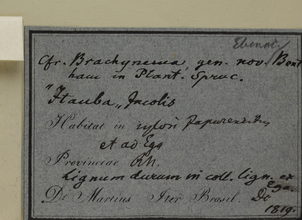 Ebenac.
Cfr. Brachynema, gen. nov. Bent
ham in Plant. Spruc.
"Itauba" Incolis
Habitat in sylvis Japurensibus
et ad Ega
Provinciae R.N.
Lignum durum in coll. lign. ex
Ega.
De Martius Iter Brasil. De
1819.